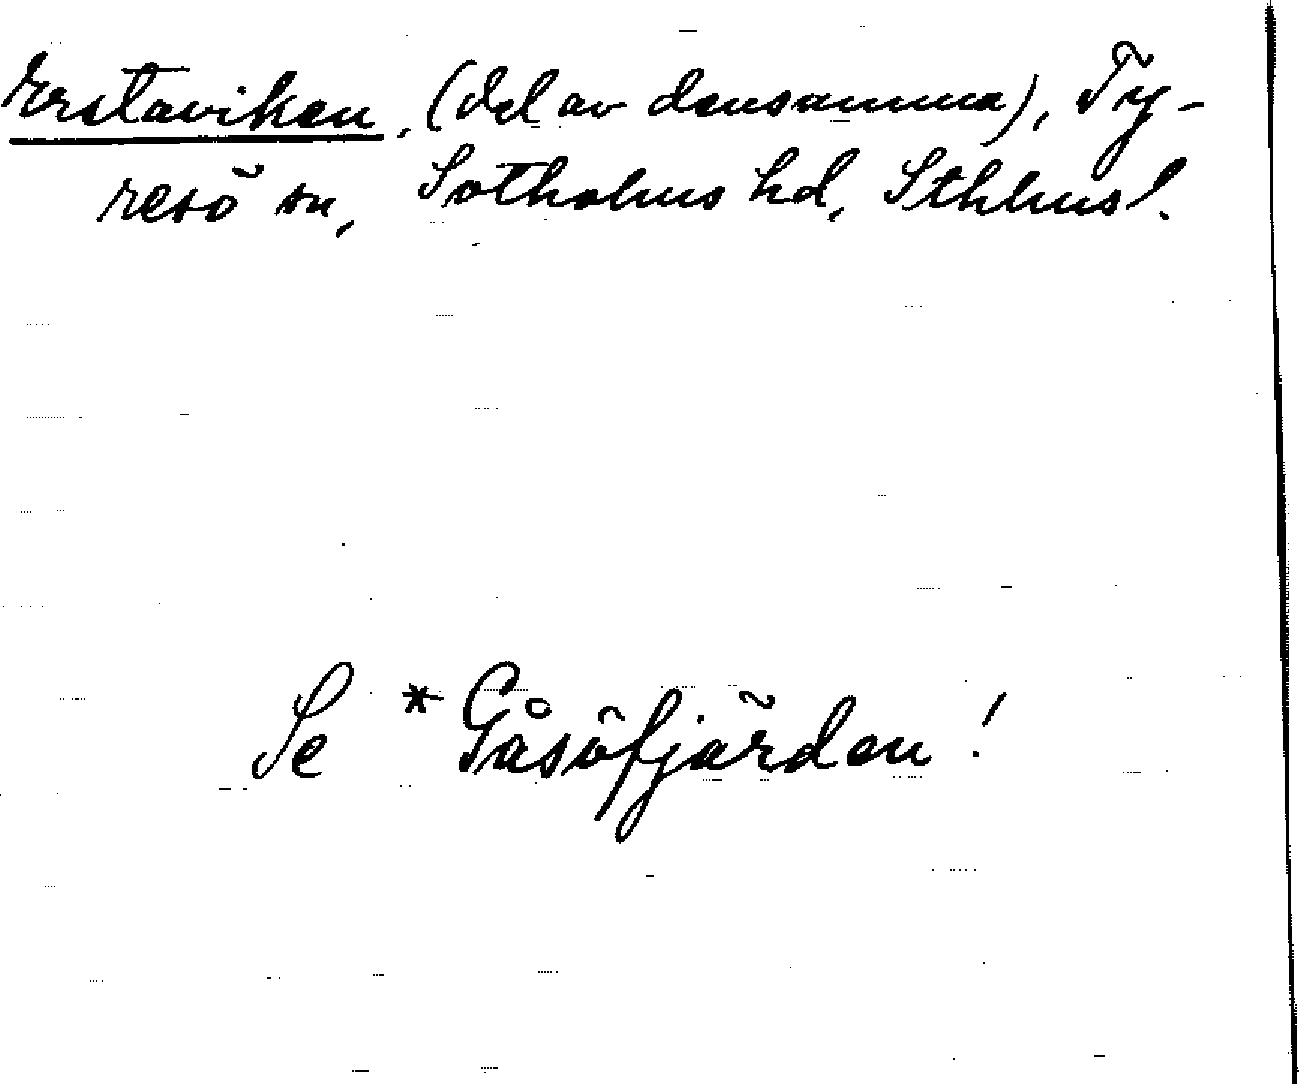 Erstaviken, (del av densamma), Ty-
resö sn, Sotholms hd, Sthlms l.
Se *Gåsöfjärden!